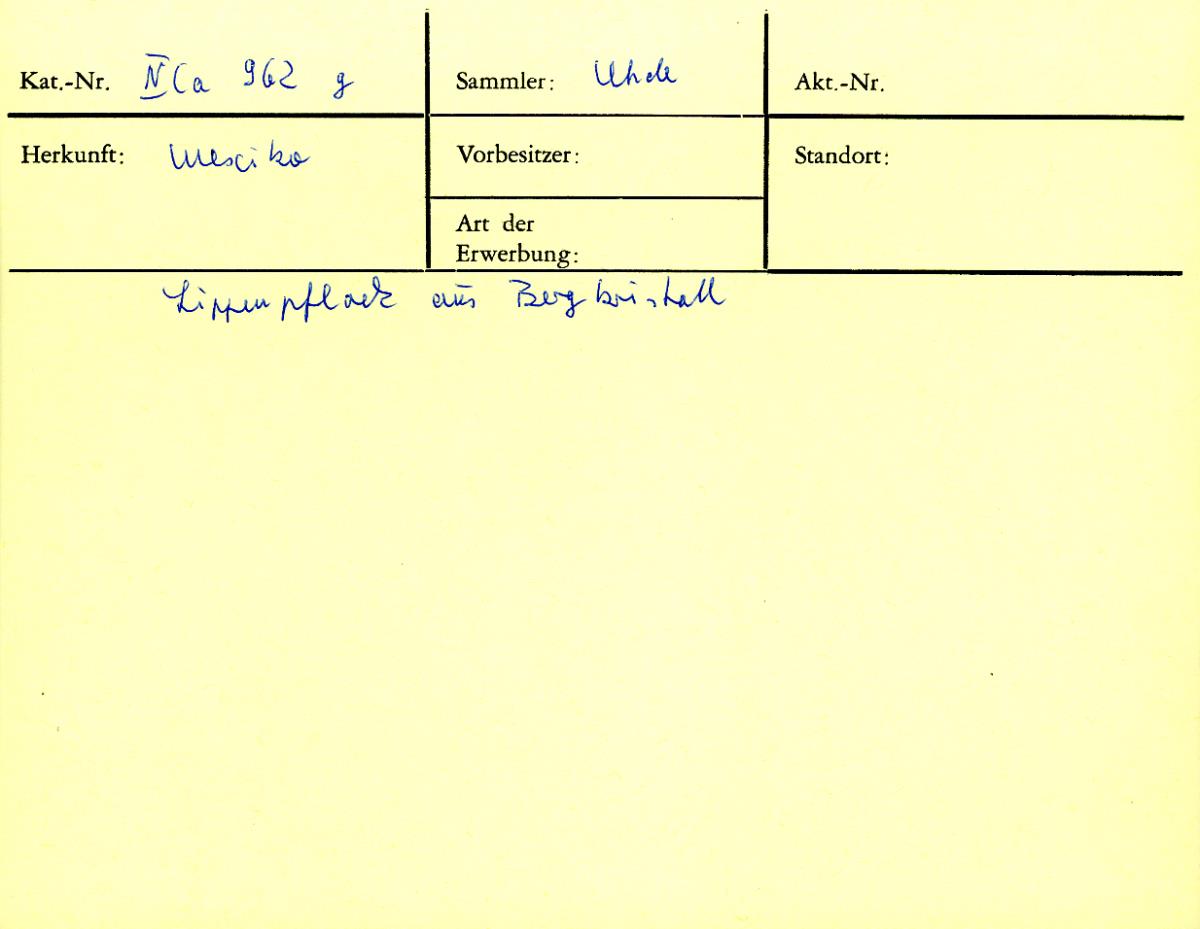 Kat.-Nr. IV Ca 962 g
Sammler: Uhde
Akt.-Nr.
Herkunft: Mexiko
Vorbesitzer:
Standort:
Art der
Erwerbung:
Lippenpflock aus Bergkristall